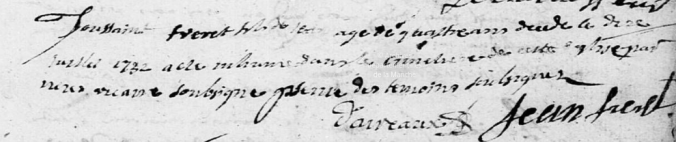 Toussaint freret fils de Jean agé de quatre ans decede le dixe
juillet 1732 a ete inhumé dans le cimetiere de cette eglise par
nous vicaire soubsigné presence des temoins soubsignez
Jean freret